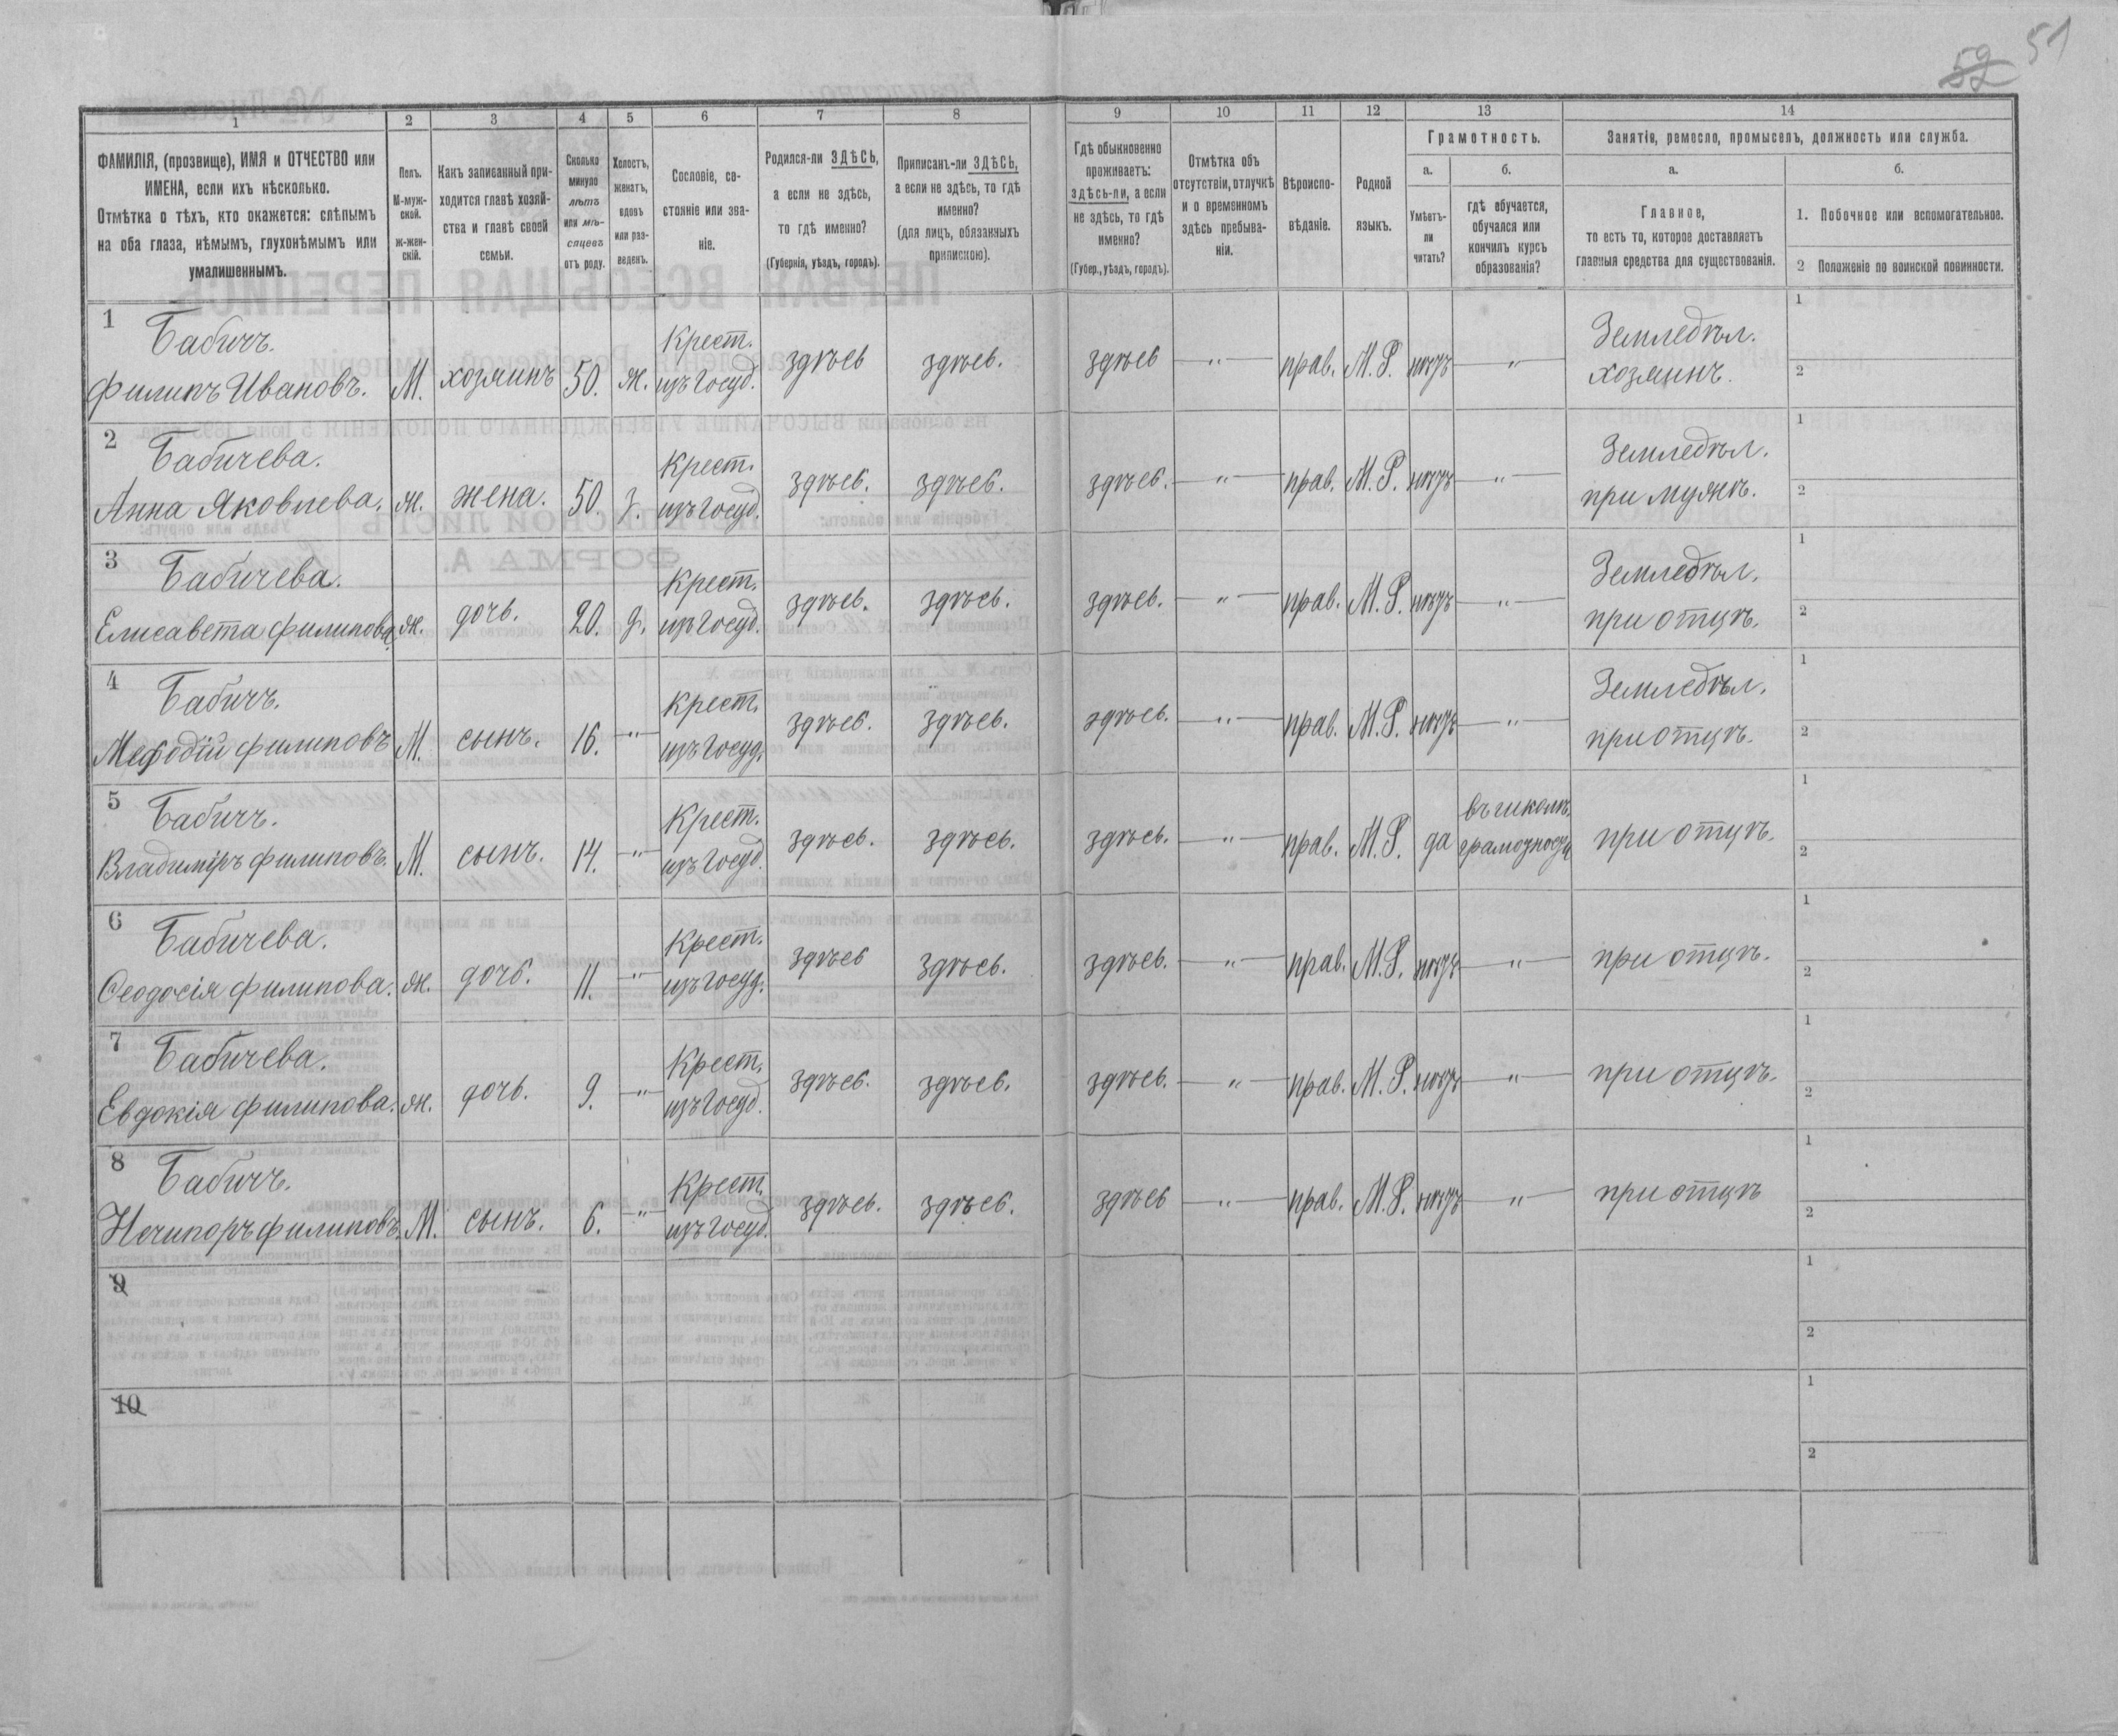 52 51
1 2 3 4 5 6 7 8 9 10 11 12 13 14
ФАМИЛІЯ, (прозвище), ИМЯ и ОТЧЕСТВО или
ИМЕНА, если ихъ нѣсколько.
Отмѣтка о тѣхъ, кто окажется: слѣпымъ
на оба глаза, нѣмымъ, глухонѣмымъ или
умалишеннымъ.
Полъ.
М-муж-
ской.
Ж-жен-
скій.
Какъ записанный при-
ходится главѣ хозяй-
ства и главѣ своей
семьи.
Сколько
минуло
лѣтъ
или мѣ-
сяцевъ
отъ роду.
Холостъ,
женатъ,
вдовъ
или раз-
веденъ.
Сословіе, со-
стояніе или зва-
ніе.
Родился-ли ЗДѢСЬ,
а если не здѣсь,
то гдѣ именно?
(Губернія, уѣздъ, городъ).
Приписанъ-ли ЗДѢСЬ,
а если не здѣсь, то гдѣ
именно?
(для лицъ, обязанныхъ
припискою).
Гдѣ обыкновенно
проживаетъ:
здѣсь-ли, а если
не здѣсь, то гдѣ
именно?
(Губер., уѣздъ, городъ).
Отмѣтка объ
отсутствіи, отлучкѣ
и о временномъ
здѣсь пребыва-
ніи.
Вѣроиспо-
вѣданіе.
Родной
языкъ.
Грамотность.
а. б.
Умѣетъ-
ли
читать?
гдѣ обучается,
обучался или
кончилъ курсъ
образованія?
Занятія, ремесло, промыселъ, должность или служба.
а. б.
Главное,
то есть то, которое доставляетъ
главныя средства для существованія.
1. Побочное или вспомогательное.
2 Положеніе по воинской повинности.
1 Бабичъ. Крест. Земледѣл. 1
Филипъ Ивановъ. М. хозяинъ 50. ж. изъ госуд. здѣсь здѣсь. здѣсь — „ — прав. М.Р. нѣтъ — „ — хозяинъ. 2
2 Бабичева. Крест. Земледѣл. 1
Анна Яковлева. ж. жена. 50. з. изъ госуд. здѣсь. здѣсь. здѣсь. — „ — прав. М.Р. нѣтъ — „ — при мужѣ. 2
3 Бабичева. Крест. Земледѣл. 1
Елисавета Филипова. ж. дочь. 20. д. изъ госуд. здѣсь. здѣсь. здѣсь. — „ — прав. М.Р. нѣтъ — „ — при отцѣ. 2
4 Бабичъ. Крест. Земледѣл. 1
Мефодій Филиповъ М. сынъ. 16. — „ — изъ госуд. здѣсь. здѣсь. здѣсь. — „ — прав. М.Р. нѣтъ — „ — при отцѣ. 2
5 Бабичъ. Крест. въ школѣ 1
Владиміръ Филиповъ. М. сынъ. 14. — „ — изъ госуд. здѣсь. здѣсь. здѣсь. — „ — прав. М.Р. да при отцѣ. 2
6 Бабичева. Крест. 1
Ѳеодосія Филипова. ж. дочь. 11. — „ — изъ госуд. здѣсь здѣсь. здѣсь. — „ — прав. М.Р. нѣтъ — „ — при отцѣ. 2
7 Бабичева. Крест. 1
Евдокія Филипова. ж. дочь. 9. — „ — изъ госуд. здѣсь. здѣсь. здѣсь. — „ — прав. М.Р. нѣтъ — „ — при отцѣ. 2
8 Бабичъ. Крест. 1
Нечипоръ Филиповъ. М. сынъ. 6. — „ — изъ госуд. здѣсь. здѣсь. здѣсь — „ — прав. М.Р. нѣтъ — „ — при отцѣ 2
9 1
2
10 1
2